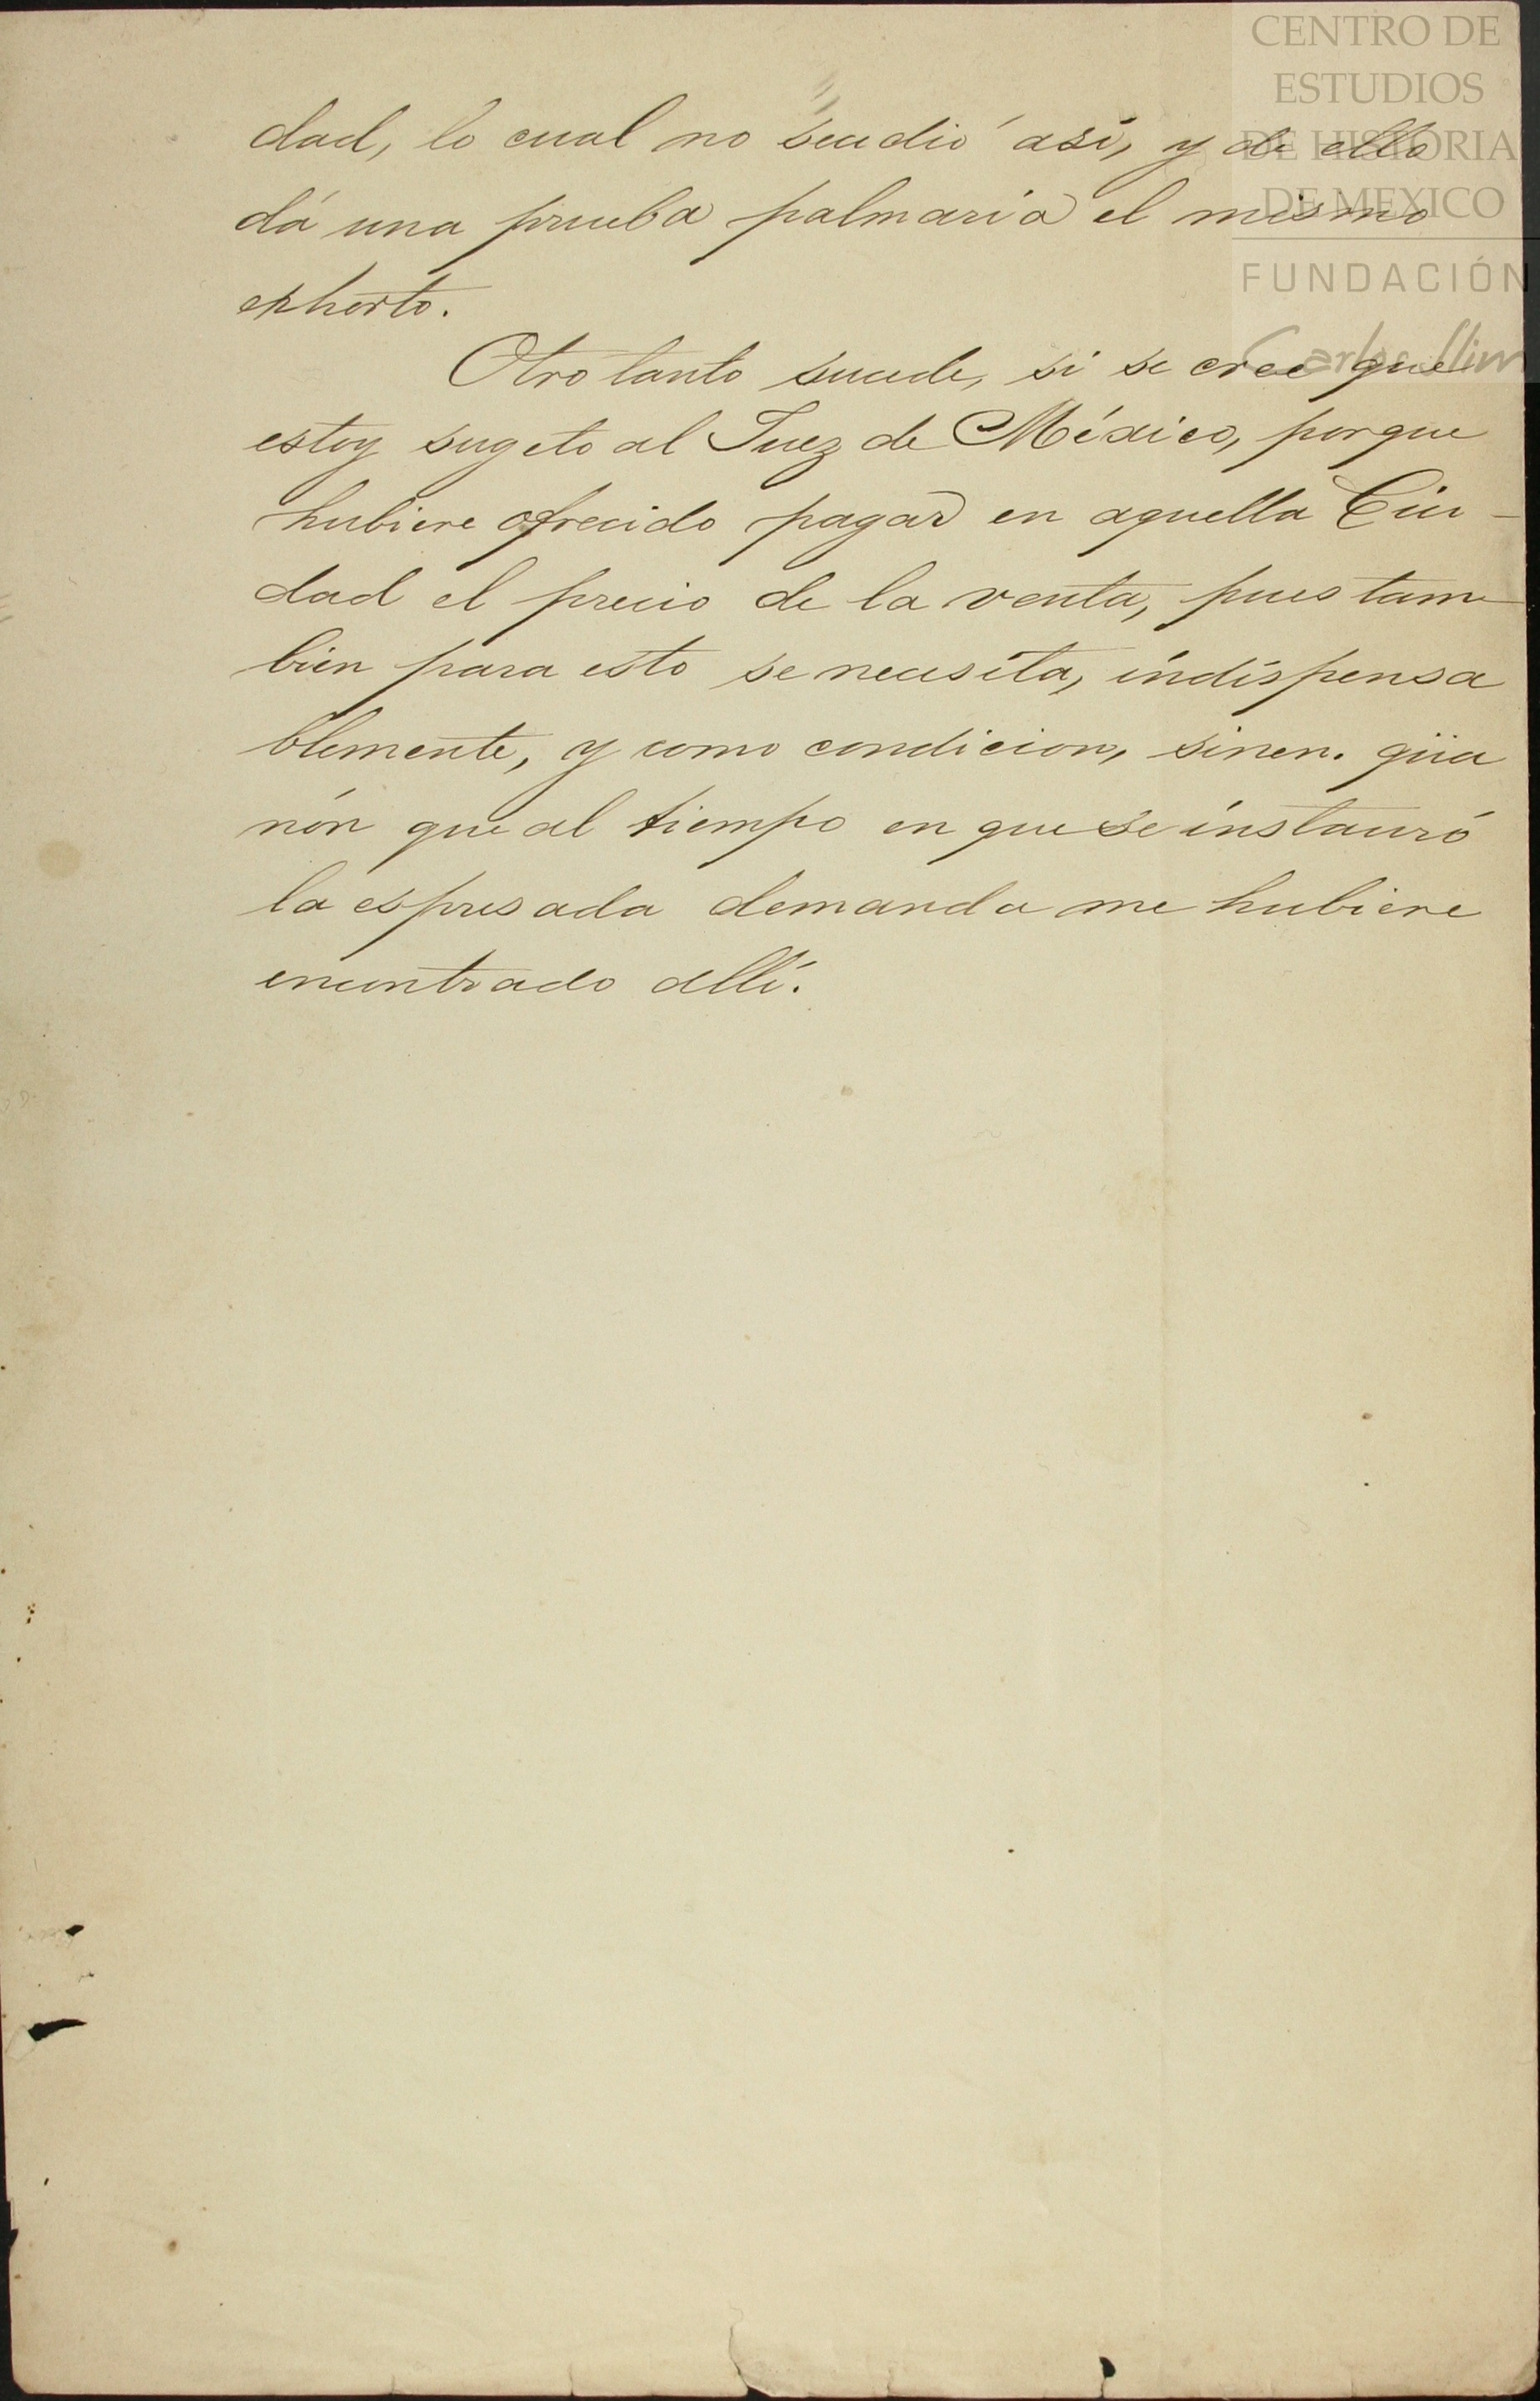 CENTRO DE
ESTUDIOS
DE HISTORIA
DE MEXICO
FUNDACIÓN
Carlos Slim
dad, lo cual no sucudió así, y de ello
dá una prueba palmaria el mismo
exhorto.
Otro tanto sucede, si se cree que
estoy sugeto al Juez de México, porque
hubiere ofrecido pagar en aquella Ciu-
dad el precio de la venta, pues tam-
bien para esto se necesita, indispensa
blemente, y como condicion, sinen. qüa
nón que al tiempo en que se instauró
la espresada demanda me hubiere
encontrado allí.